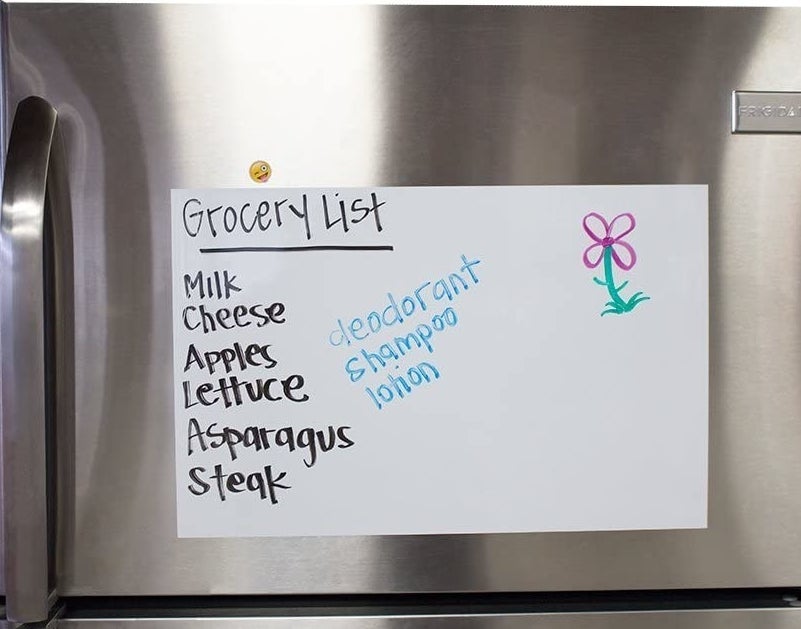 Grocery List
Milk
Cheese
Apples
Lettuce
Asparagus
Steak
deodorant
shampoo
lotion